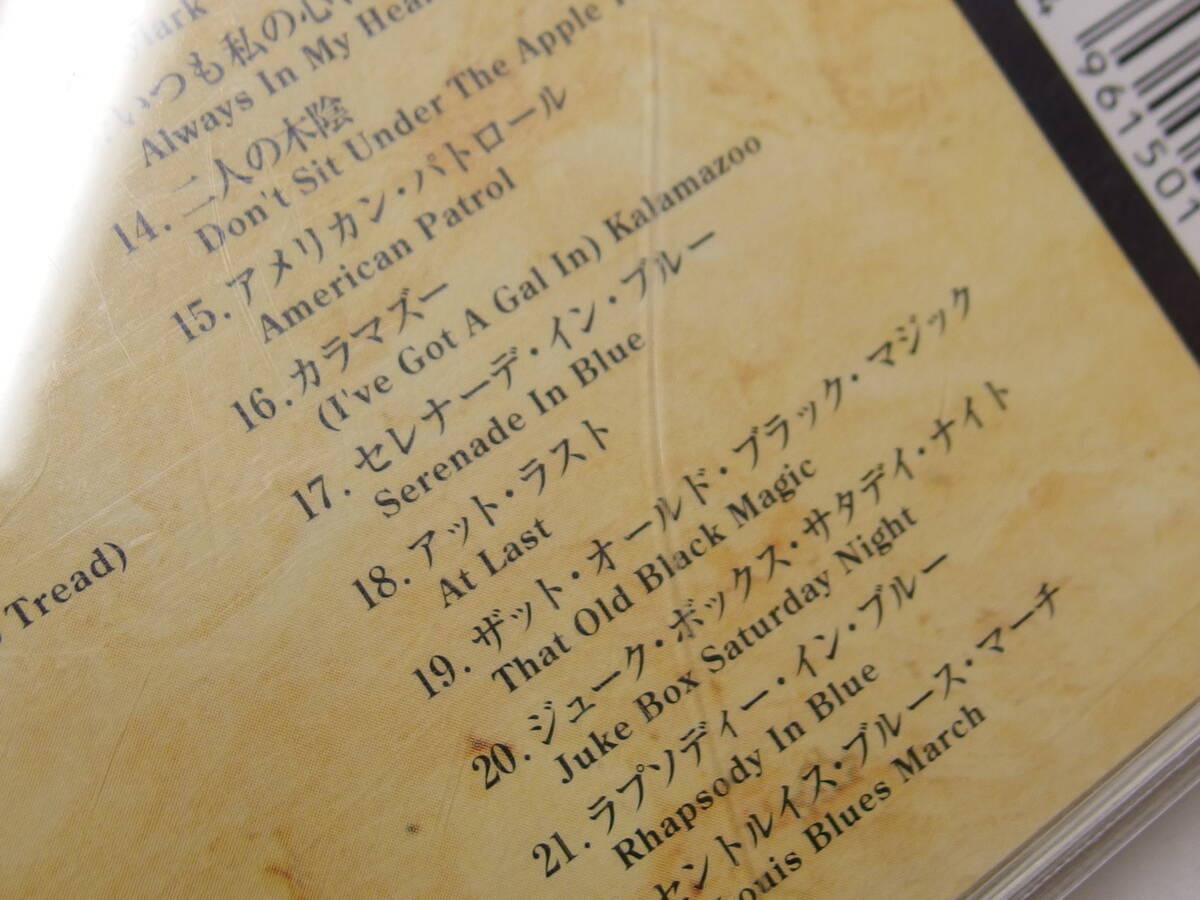 いつも私の心に
Always In My Hear
14. 二人の木陰
Don't Sit Under The Apple
15. アメリカン・パトロール
American Patrol
16. カラマズー
(I've Got A Gal In) Kalamazoo
17. セレナーデ・イン・ブルー
Serenade In Blue
18. アット・ラスト
At Last
19. ザット・オールド・ブラック・マジック
That Old Black Magic
20. ジューク・ボックス・サタデイ・ナイト
Juke Box Saturday Night
21. ラプソディー・イン・ブルー
Rhapsody In Blue
セントルイス・ブルース・マーチ
Louis Blues March
Tread)
4 961501